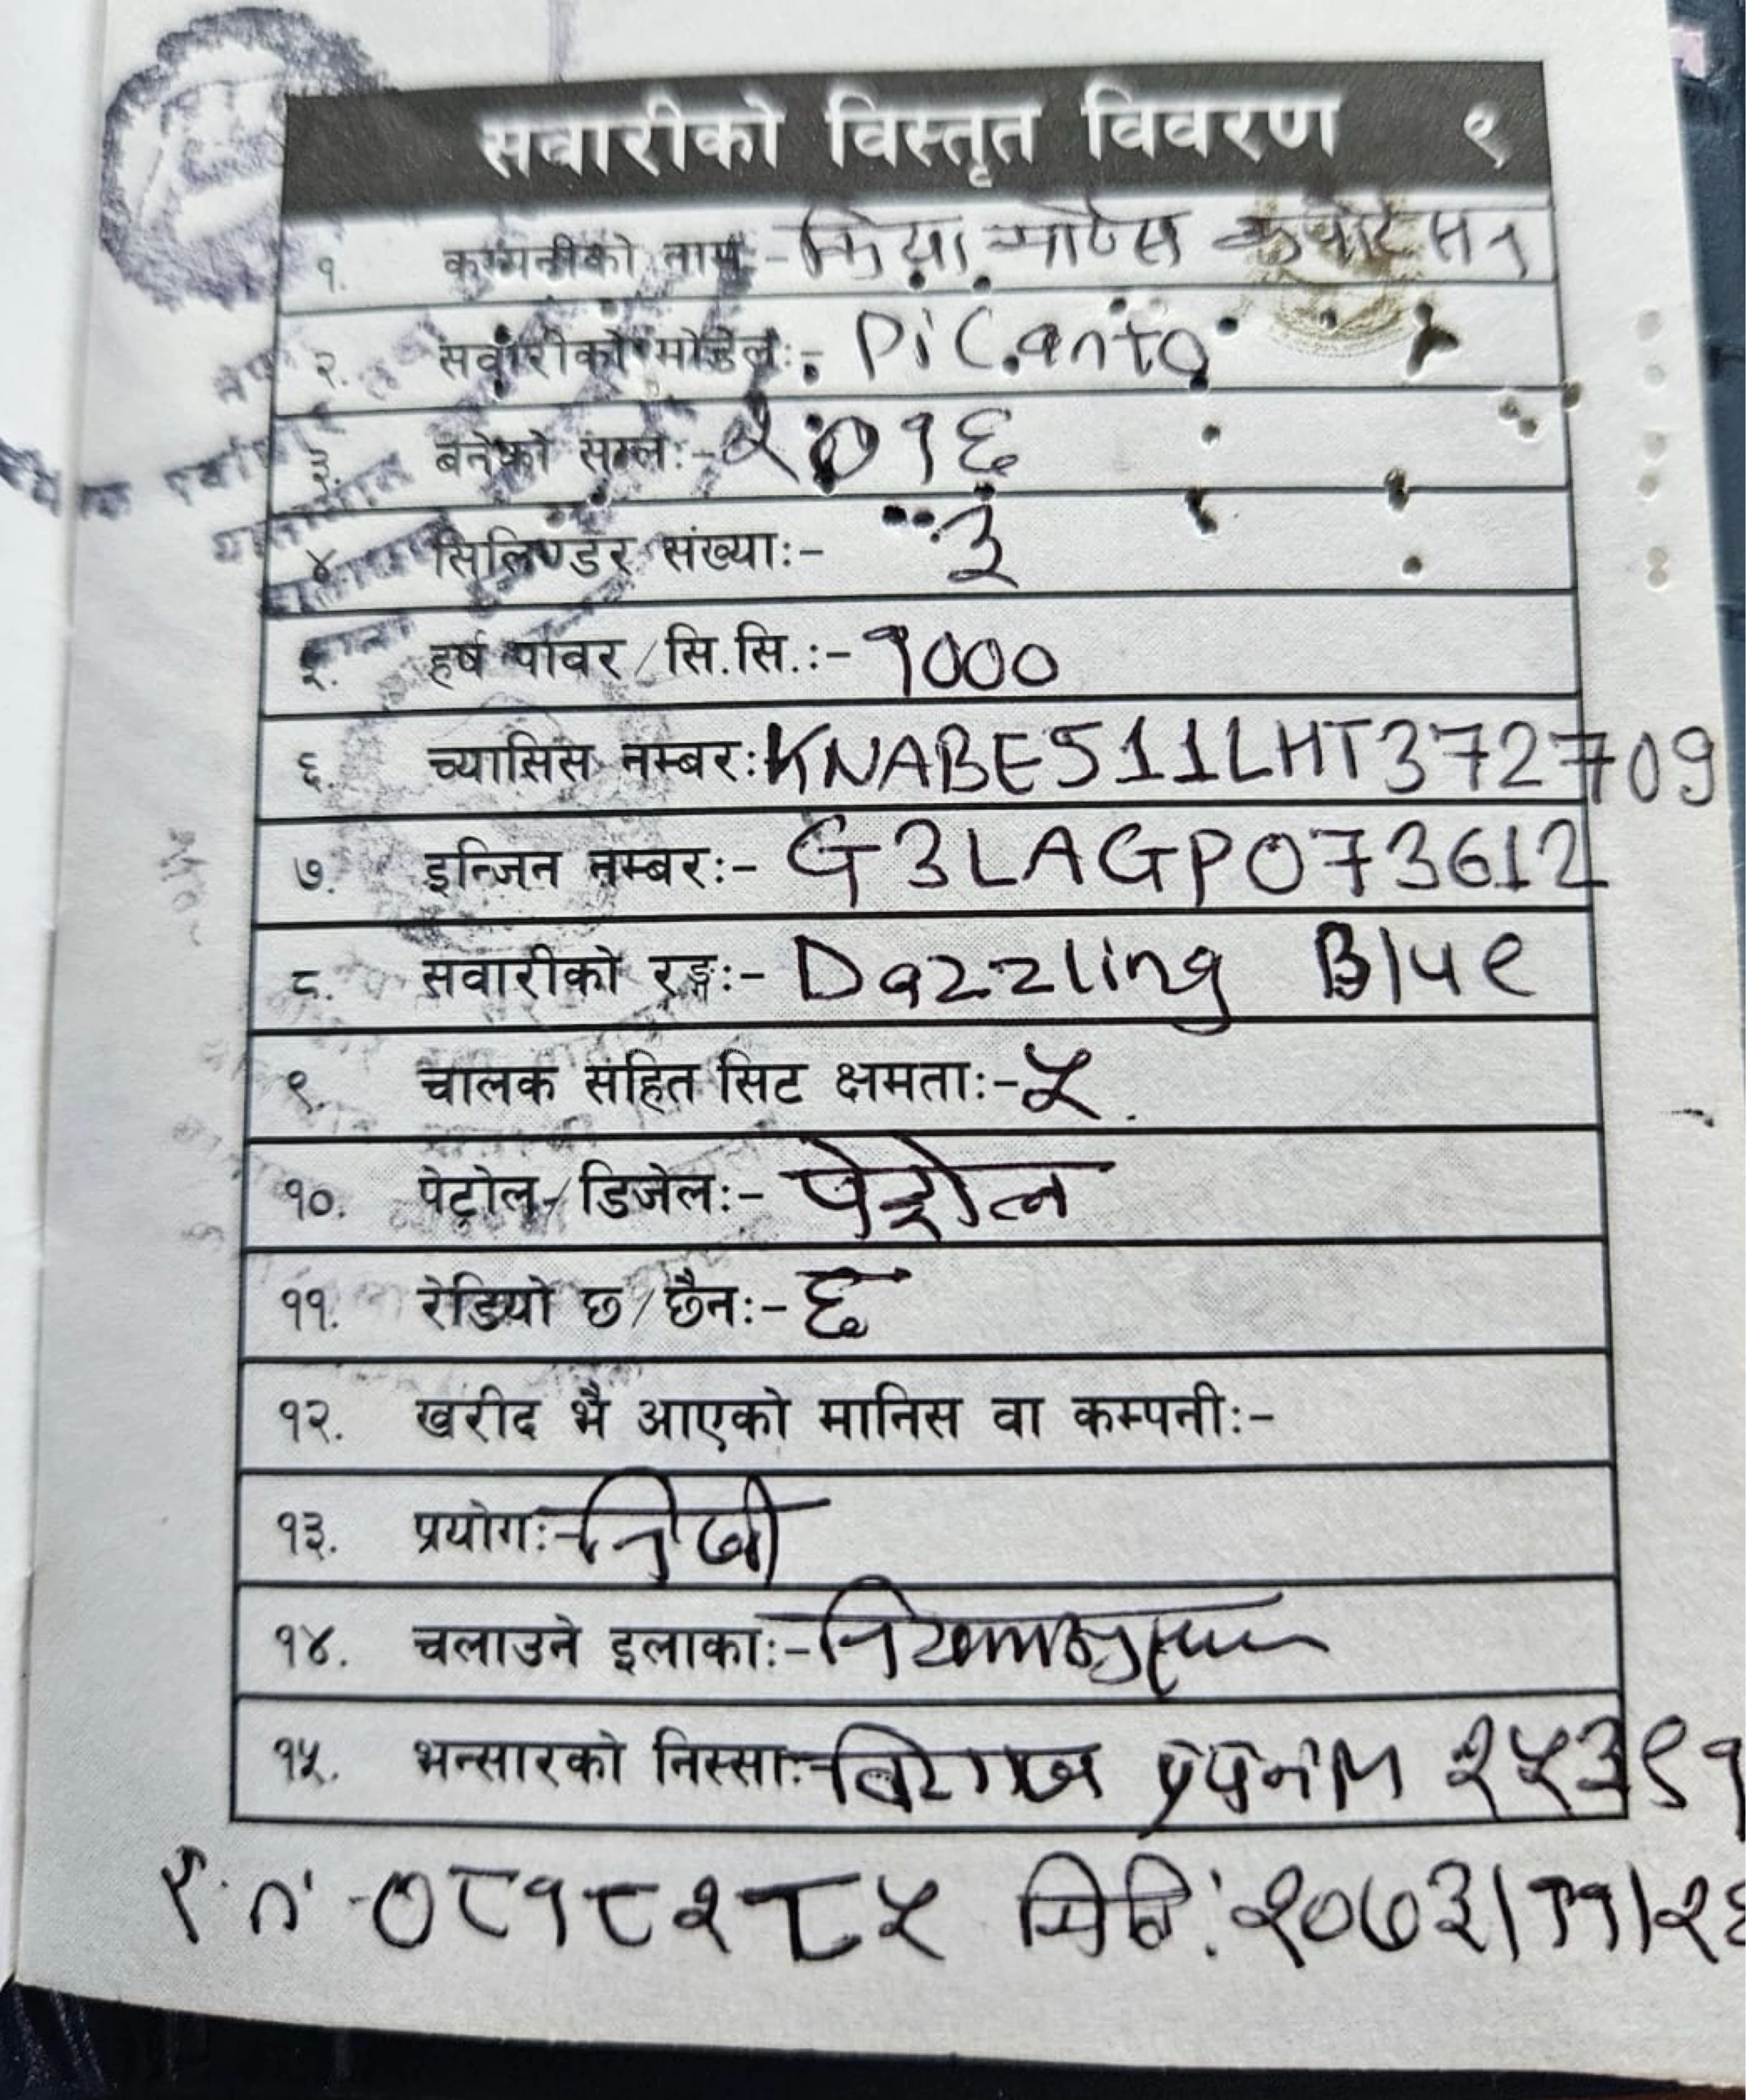 सवारीको विस्तृत विवरण ९
१. कम्पनीको नाम:- किया मोटर्स कर्पोरेसन
२. सवारीको मोडेल:- Picanto
३. बनेको साल:- २०१६
४. सिलिण्डर संख्या:- ३
५. हर्ष पावर/सि.सि.:- १०००
६. च्यासिस नम्बर: KNABE511LHT372709
७. इन्जिन नम्बर:- G3LAGP073612
८. सवारीको रङ्ग:- Dazzling Blue
९. चालक सहित सिट क्षमता:- ५
१०. पेट्रोल/डिजेल:- पेट्रोल
११. रेडियो छ/छैन:- छ
१२. खरीद भै आएको मानिस वा कम्पनी:-
१३. प्रयोग:- निजी
१४. चलाउने इलाका:- नियमानुसार
१५. भन्सारको निस्सा:- २५३९१
०८१८२८५ मिति: २०७३/११/२६